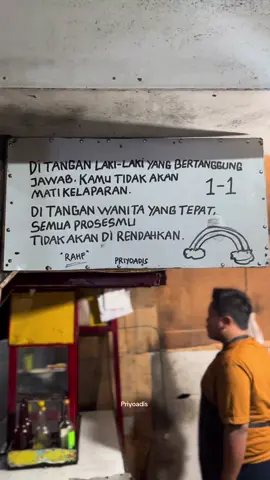 DI TANGAN LAKI-LAKI YANG BERTANGGUNG
JAWAB, KAMU TIDAK AKAN
MATI KELAPARAN.
1-1
DI TANGAN WANITA YANG TEPAT,
SEMUA PROSESMU
TIDAK AKAN DI RENDAHKAN.
"RAHP"
PRIYOADIS
Priyoadis